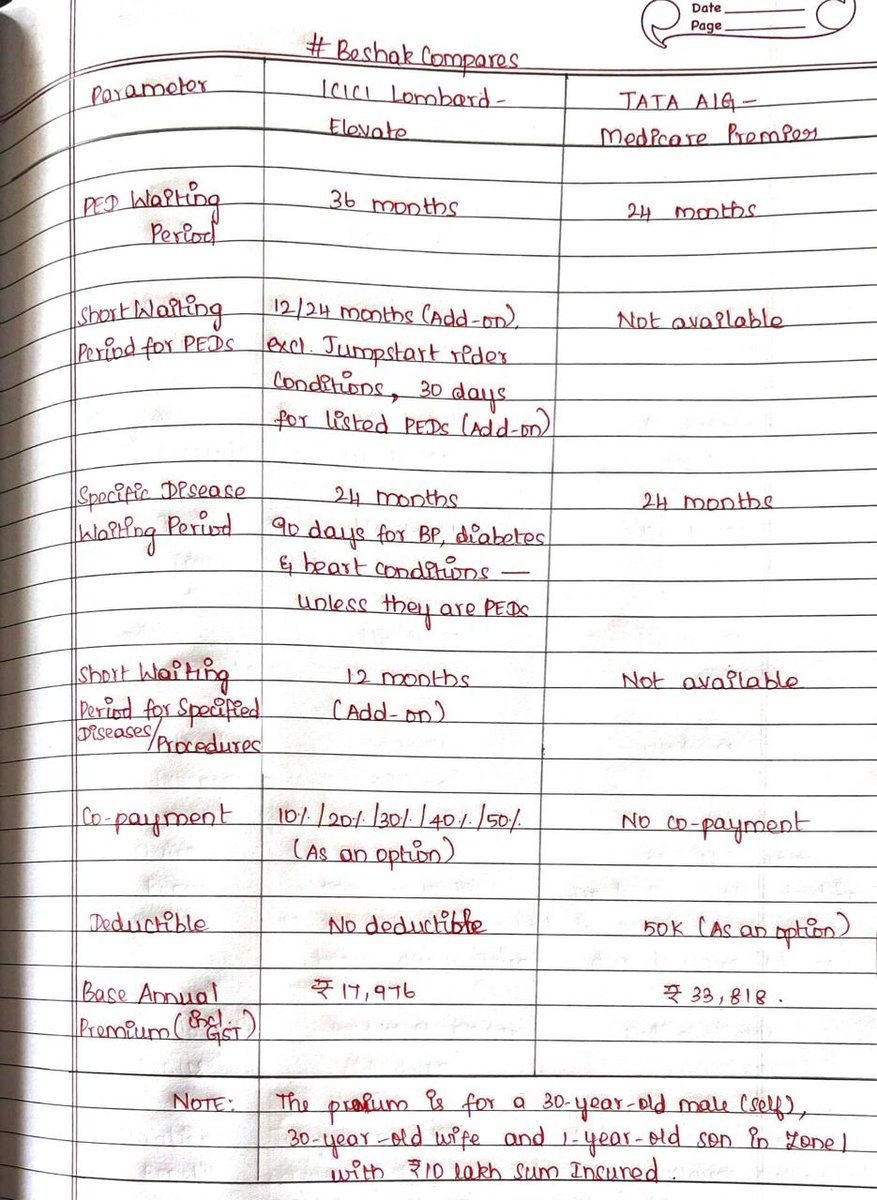 Date
Page
# Beshak Compares
Parameter
ICICI Lombard-
Elevate
TATA AIG-
Medicare Premier
PED Waiting
Period
36 months
24 months
Short Waiting
Period for PEDs
12/24 months (Add-on),
excl. Jumpstart rider
Conditions, 30 days
for listed PEDs (Add-on)
Not available
Specific Disease
Waiting Period
24 months
90 days for BP, diabetes
& heart conditions —
unless they are PEDs
24 months
Short Waiting
Period for Specified
Diseases/Procedures
12 months
(Add-on)
Not available
Co-payment
10%/20%/30%/40%/50%
(As an option)
No co-payment
Deductible
No deductible
50K (As an option)
Base Annual
Premium (Excl. GST)
₹17,976
₹33,818.
NOTE: The premium is for a 30-year-old male (self),
30-year-old wife and 1-year-old son in Zone 1
with ₹10 lakh sum Insured.